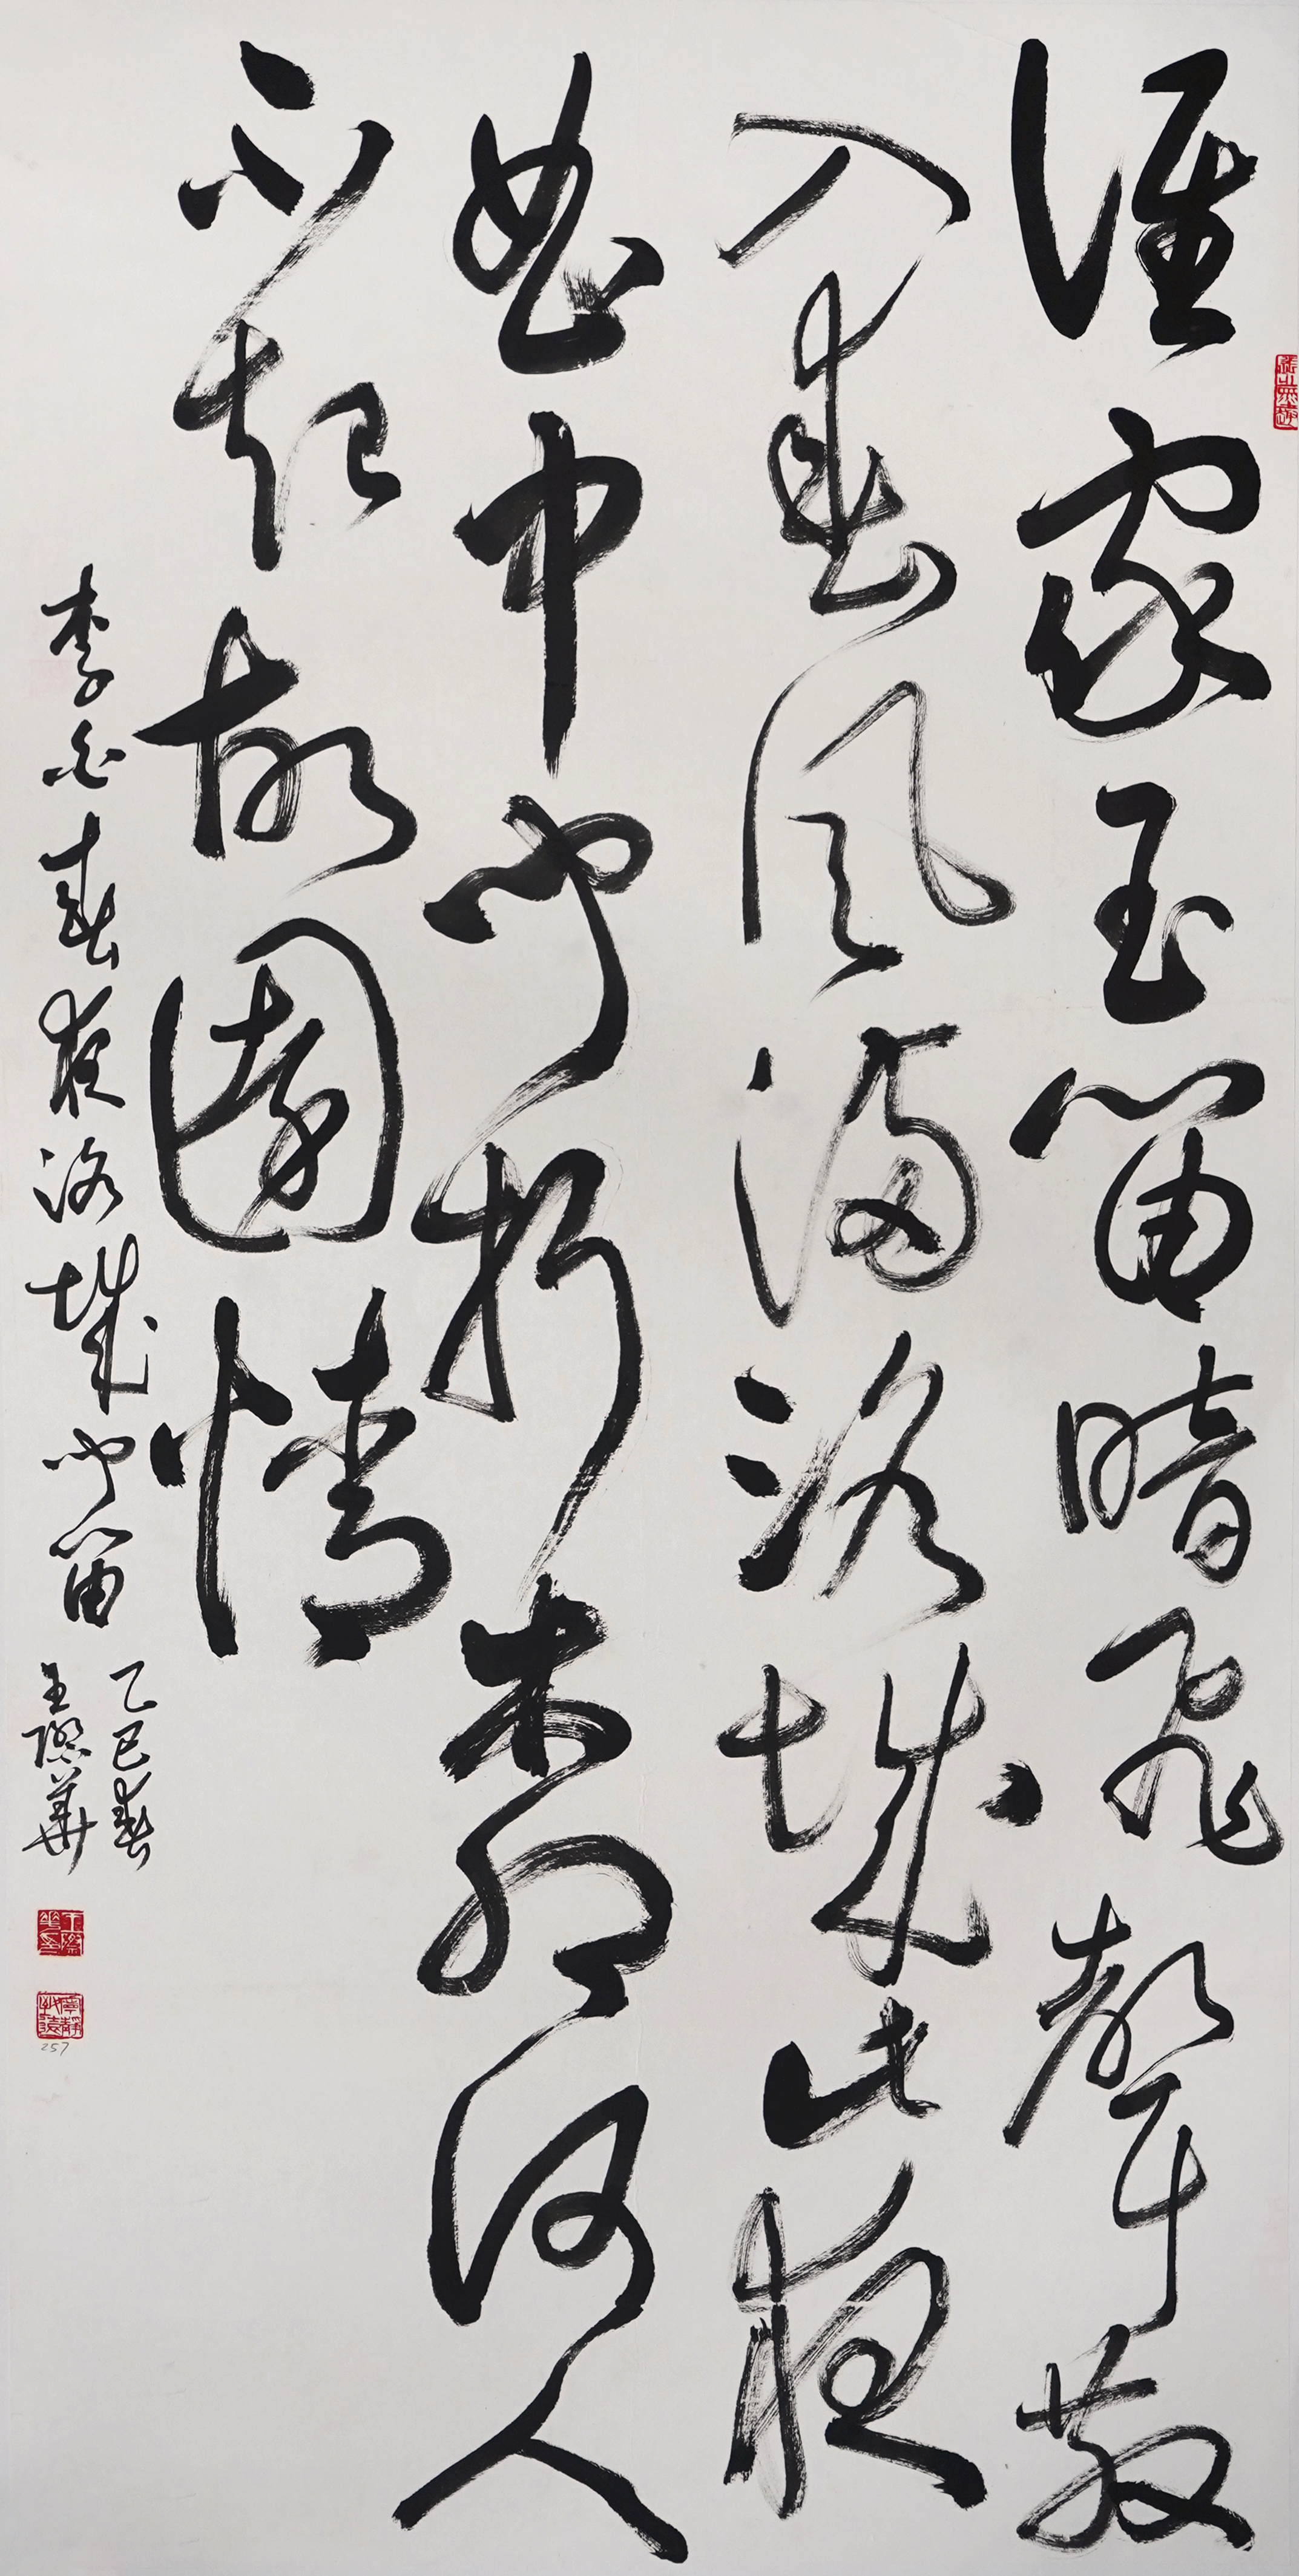 誰家玉笛暗飛聲散
入春風滿洛城此夜
曲中聞折柳何人
不起故園情
李白春夜洛城聞笛
乙巳春
王際華
257